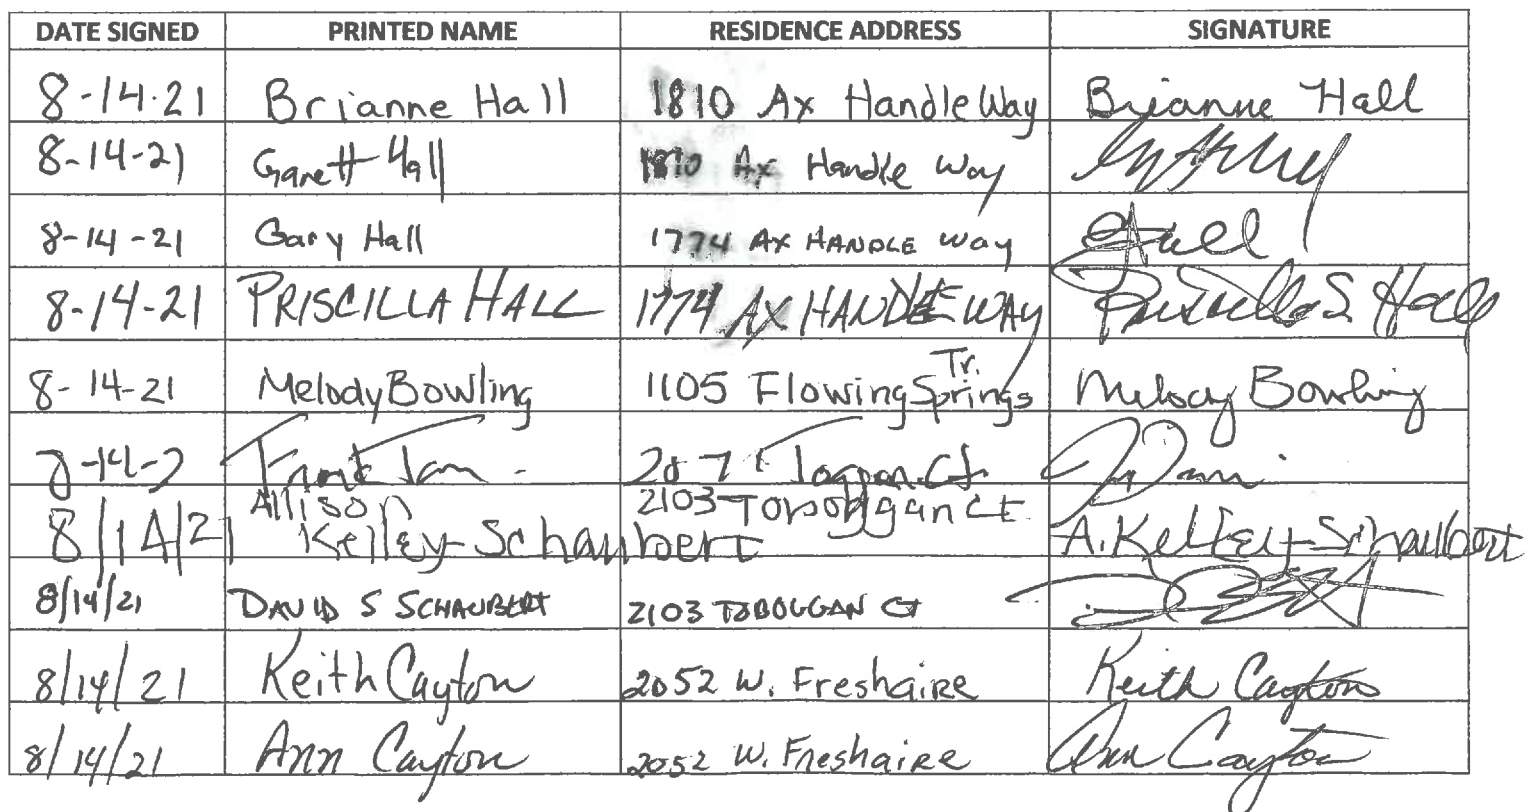 DATE SIGNED PRINTED NAME RESIDENCE ADDRESS SIGNATURE
8-14-21 Brianne Hall 1810 Ax Handle Way Brianne Hall
8-14-21 Garett Hall 1810 Ax Handle Way
8-14-21 Gary Hall 1774 AX HANDLE Way GHall
8-14-21 PRISCILLA HALL 1774 AX HANDLE WAY Priscilla S Hall
8-14-21 Melody Bowling 1105 Flowing Springs Tr. Melody Bowling
Ct
8/14/21 Allison Kelley-Schaubert 2103 Toboggan Ct A. Kelley-Schaubert
8/14/21 DAVID S SCHAUBERT 2103 TOBOGGAN Ct
8/14/21 Keith Cayton 2052 W. Freshaire Keith Cayton
8/14/21 Ann Cayton 2052 W. Freshaire Ann Cayton